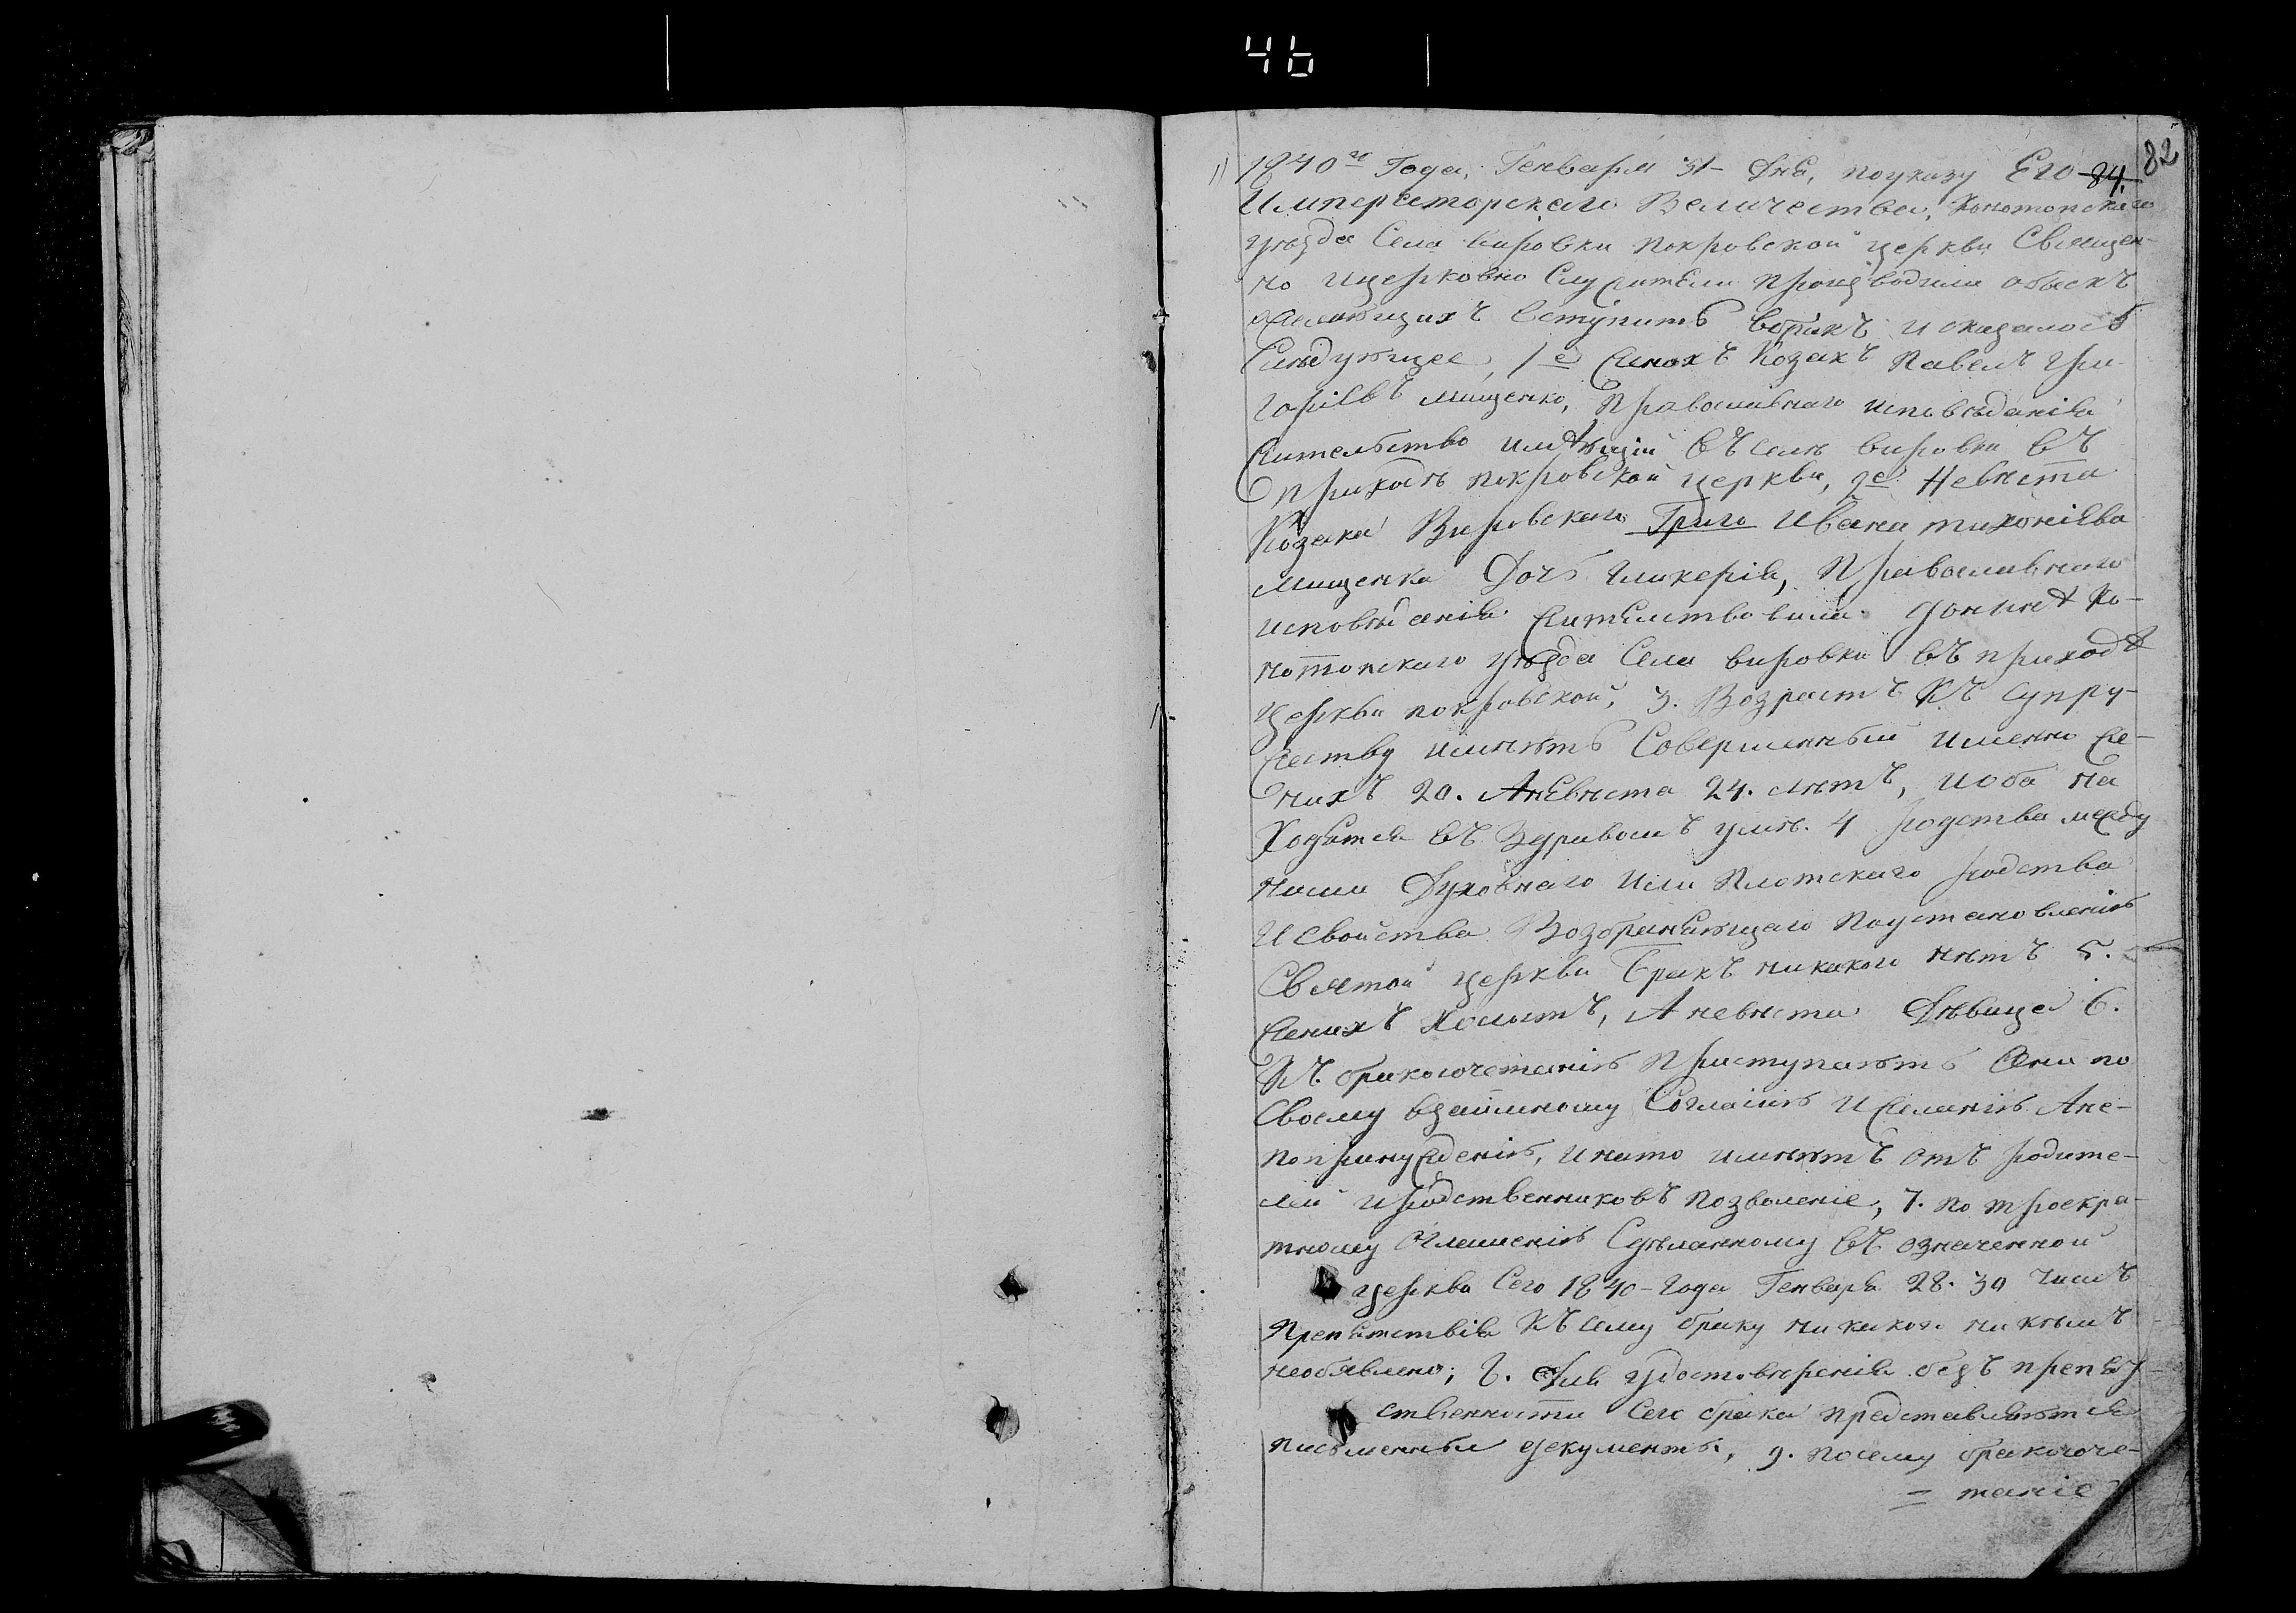 46
82
11) 1840го Года, Генваря 31- Дня, поуказу Его 84.
Императорскаго Величества, Конотопскаго
уезда Села вировки покровской церкви Священ-
но ицерковно Служители производили обыскъ
желающихъ вступить вбракъ и оказалось
Следующее, 1е Женихъ Козакъ Павелъ Гри-
горіевъ мищенко, Православнаго исповѣданія
Жительство имѣющій въ селѣ вировки въ
приходѣ покровской церкви, 2е Невѣста
Козака Вировскаго Григо Ивана тихоніева
мищенка Дочь гликерія, Православнаго
исповѣданія Жительствовала донинѣ Ко-
нотопскаго уѣзда Села вировки въ приходѣ
Церкви покровской, 3. Возрастъ Къ Супру-
жеству имѣютъ Совершенный именно же-
нихъ 20. Аневѣста 24. лѣтъ, иоба на
Ходятся въ Здравомъ умѣ. 4 родства между
ними Духовнаго или Плотскаго родства
И свойства Возбраняющаго Поустановленію
Святой церкви Бракъ никакого нѣтъ 5.
Женихъ Холостъ, Аневѣста Дѣвица 6.
Къ бракосочетанію Приступаютъ Они по
Своему взаимному Согласію И Желанію Ане-
попринужденію, инато имѣютъ отъ родите-
лей иродственниковъ позволеніе, 7. по троекра-
тному Оглашенію Сдѣланному въ означенной
церкви Сего 1840-Года Генваря 28. 30 Числъ
Препятствія Къ сему браку никакого никѣмъ
необявлено; 8. Для удостовѣренія безъ препят-
ственности Сего брака представляются
письменныя документы, 9. посему бракосоче-
= таніе